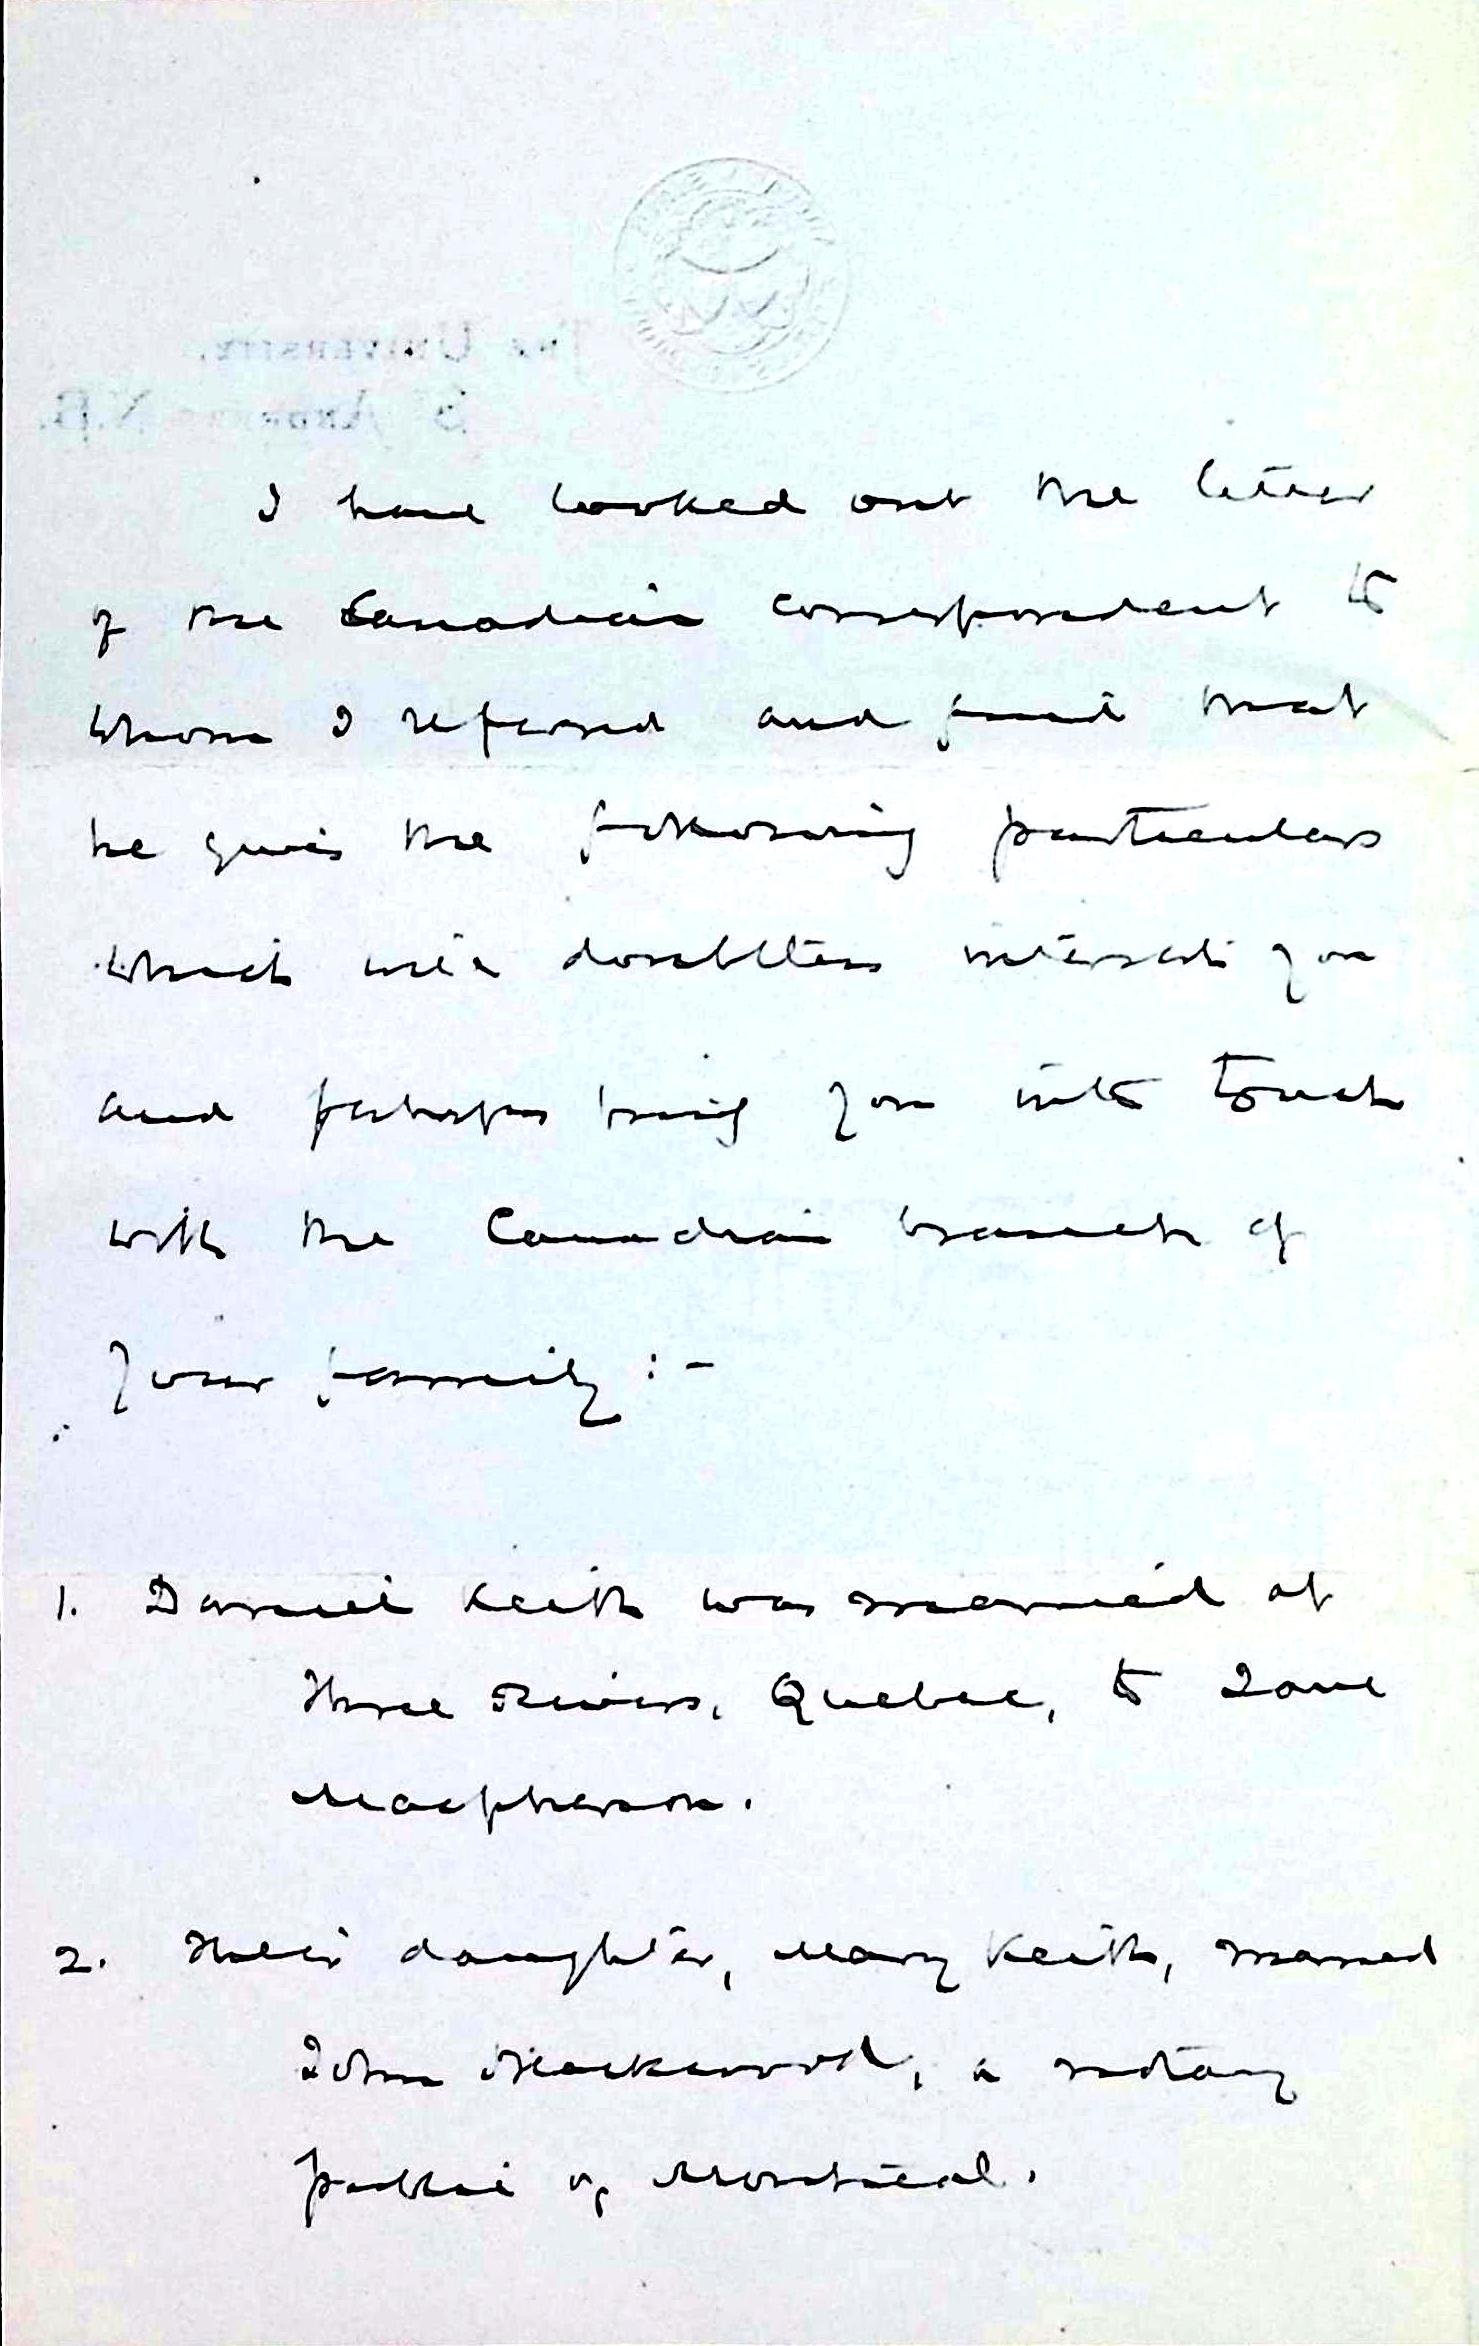 The University,
St Andrews N.B.
I have looked out the letter
of the Canadian correspondent to
whom I referred and find that
he gives the following particulars
which will doubtless interest you
and perhaps bring you into touch
with the Canadian branch of
your family :-
1. Daniel Keith was married at
Three Rivers, Quebec, to Jane
Macpherson.
2. Their daughter, Mary Keith, married
John Blackwood, a notary
public of Montreal.